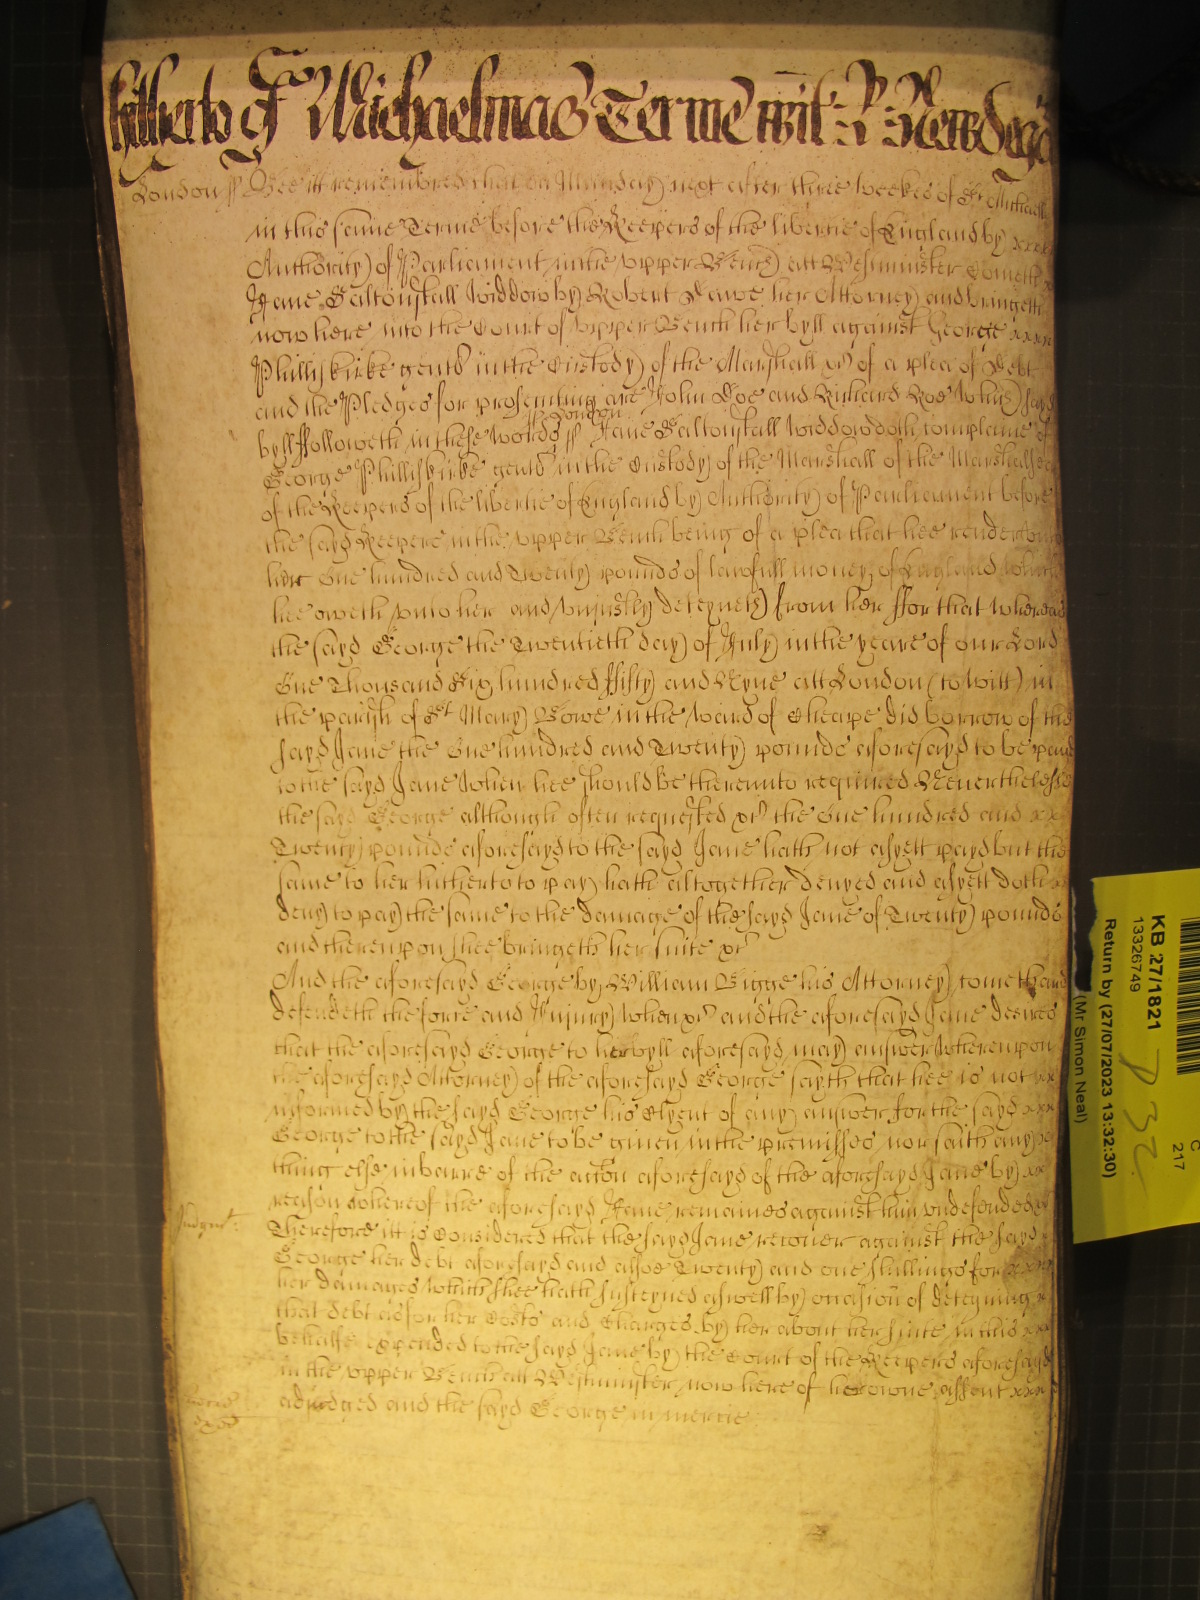 hitherto of Michaelmas Terme wit: R: Newdegat
London ss Bee itt remembred that on Munday next after three weekes of St Michaell
in this same Terme before the Keepers of the libertie of England by xxx
Authority of Parliament in the upper Bench att Westminster Cometh
Jane Saltonstall widdow by Robert Dawe her Attorney and bringeth
now here into the Court of upper Bench her byll against George xxx
Phillipkirke gent in the Custody of the Marshall &c of a plea of Debt
and the Pledges for prosecuting are John Doe and Richard Roe which sayd
byll followeth in these words ss London ss Jane Saltonstall widdow doth complaine of
George Phillipkirke gent in the Custody of the Marshall of the Marshalsea
of the Keepers of the libertie of England by Authority of Parliament before
the sayd Keepers in the upper Bench being of a plea that hee render unto
her One hundred and Twenty pounds of lawfull money of England which
hee oweth unto her and unjustly deteyneth from her ffor that whereas
the sayd George the Twentieth day of July in the yeare of our Lord
One Thousand Six hundred ffifty and Nyne att London (to witt) in
the parish of St Mary Bowe in the ward of Cheape did borrow of the
sayd Jane the One hundred and Twenty pounds aforesayd to be payd
to the sayd Jane when hee should be thereunto required Neverthelesse
the sayd George although often requested &c the One hundred and xx
Twenty pounds aforesayd to the sayd Jane hath not as yett payd but the
same to her hitherto to pay hath altogether denyed and as yett doth
deny to pay the same to the damage of the sayd Jane of Twenty pounds
and thereupon shee bringeth her suite &c
And the aforesayd George by William Bigge his Attorney cometh and
defendeth the force and Injury when &c and the aforesayd Jane desires
that the aforesayd George to her byll aforesayd may answer whereupon
the aforesayd Attorney of the aforesayd George sayth that hee is not xx
informed by the sayd George his Clyent of any answer for the sayd xxx
George to the sayd Jane to be given in the premisses nor saith any
thing else in barre of the accon aforesayd of the aforesayd Jane by xx
reason whereof the aforesayd Jane remaines against him undefended
Judgmt: Therefore itt is Considered that the sayd Jane recover against the sayd
George her debt aforesayd and alsoe Twenty and one shillings for xxx
her damages which shee hath susteyned aswell by occasion of deteyning
that debt as for her Costs and Charges by her about her suite in this xx
behalfe expended to the sayd Jane by the Court of the Keepers aforesayd
in the upper Bench att Westminster now here of her owne assent xxx
adjudged and the sayd George in mercie
KB 27/1821
13326749
Return by (27/07/2023 13:32:30)
(Mr Simon Neal)
C
217